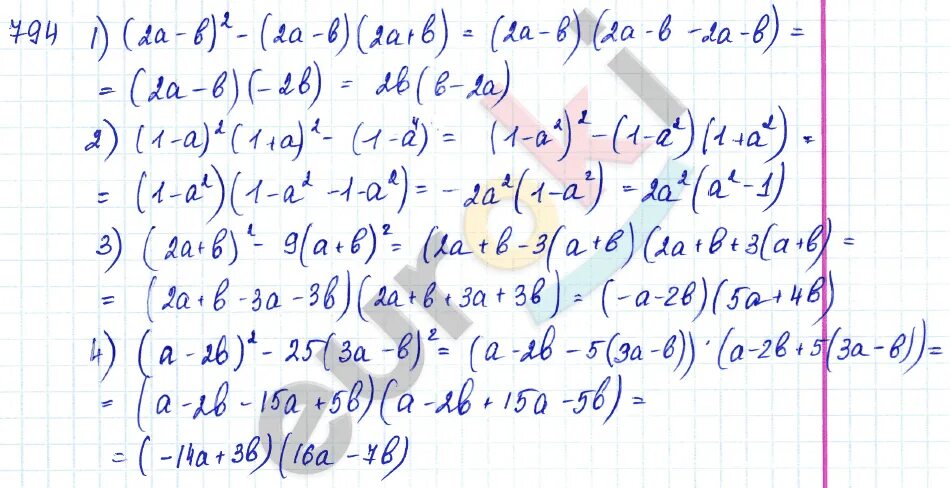 794 1) (2a-в)² - (2a-в)(2a+в) = (2a-в)(2a-в -2a-в) =
= (2a-в)(-2в) = 2в(в-2a)
2) (1-a)²(1+a)² - (1-a⁴) = (1-a²)² - (1-a²)(1+a²) =
= (1-a²)(1-a² -1-a²) = -2a²(1-a²) = 2a²(a²-1)
3) (2a+в)² - 9(a+в)² = (2a+в-3(a+в)(2a+в+3(a+в) =
= (2a+в-3a-3в)(2a+в+3a+3в) = (-a-2в)(5a+4в)
4) (a-2в)² - 25(3a-в)² = (a-2в-5(3a-в))·(a-2в+5(3a-в)) =
= (a-2в-15a+5в)(a-2в+15a-5в) =
= (-14a+3в)(16a-7в)
euroki